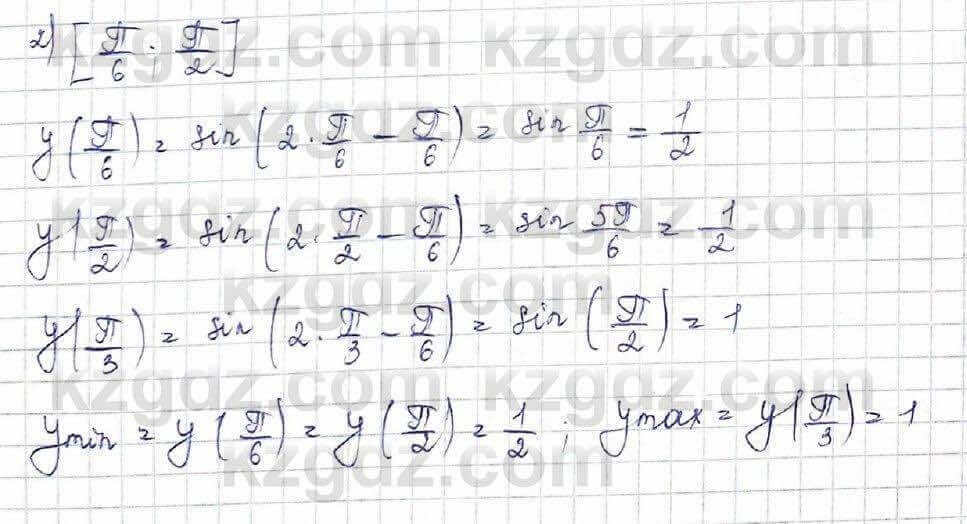 2) [π/6; π/2]
y(π/6) = sin(2·π/6 − π/6) = sin π/6 = 1/2
y(π/2) = sin(2·π/2 − π/6) = sin 5π/6 = 1/2
y(π/3) = sin(2·π/3 − π/6) = sin(π/2) = 1
ymin = y(π/6) = y(π/2) = 1/2 ; ymax = y(π/3) = 1
kzgdz.com kzgdz.com
kzgdz.com
kzgdz.com kzgdz.com
kzgdz.com
kzgdz.com kzgdz.com
kzgdz.com